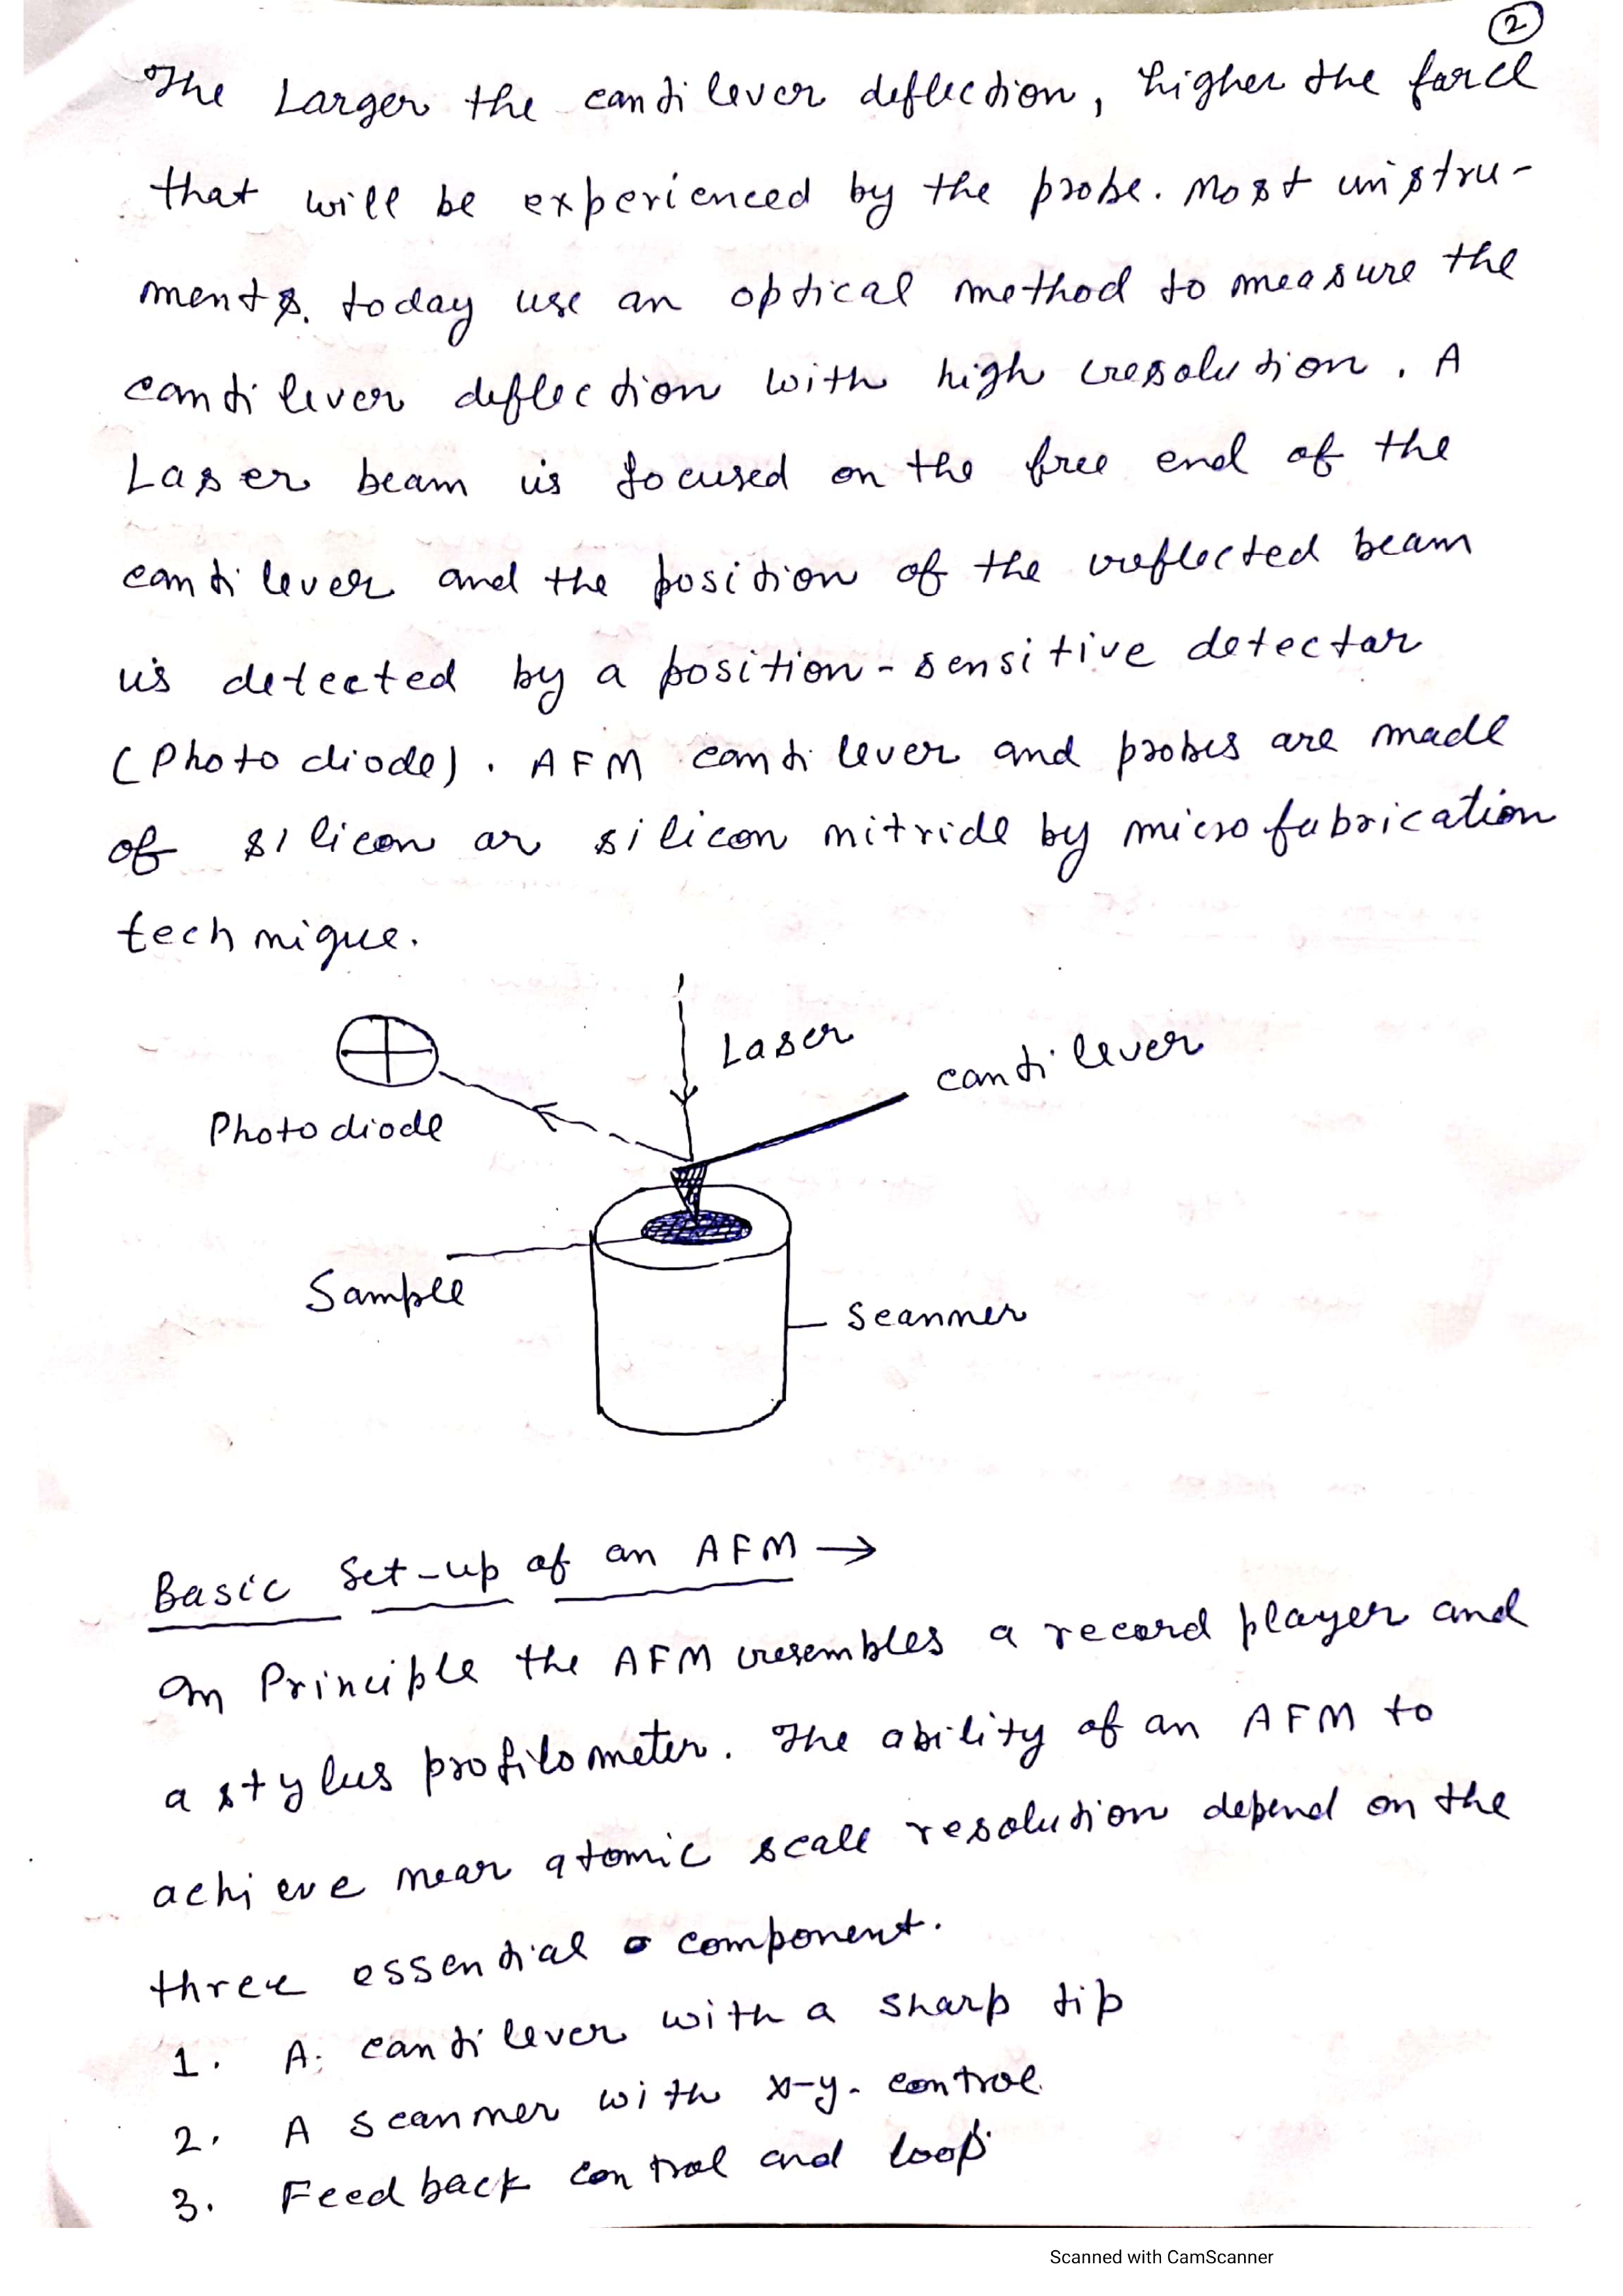 2
The Larger the cantilever deflection, higher the force
that will be experienced by the probe. Most instru-
ments. today use an optical method to measure the
cantilever deflection with high resolution. A
Laser beam is focused on the free end of the
cantilever and the position of the reflected beam
is detected by a position-sensitive detector
(Photodiode). AFM cantilever and probes are made
of silicon or silicon nitride by microfabrication
technique.
Laser
cantilever
Photodiode
Sample
Scanner
Basic Set-up of an AFM →
In Principle the AFM resembles a record player and
a stylus profilometer. The ability of an AFM to
achieve near atomic scale resolution depend on the
three essential component.
1. A cantilever with a sharp tip
2. A scanner with x-y. control
3. Feedback control and loop
Scanned with CamScanner